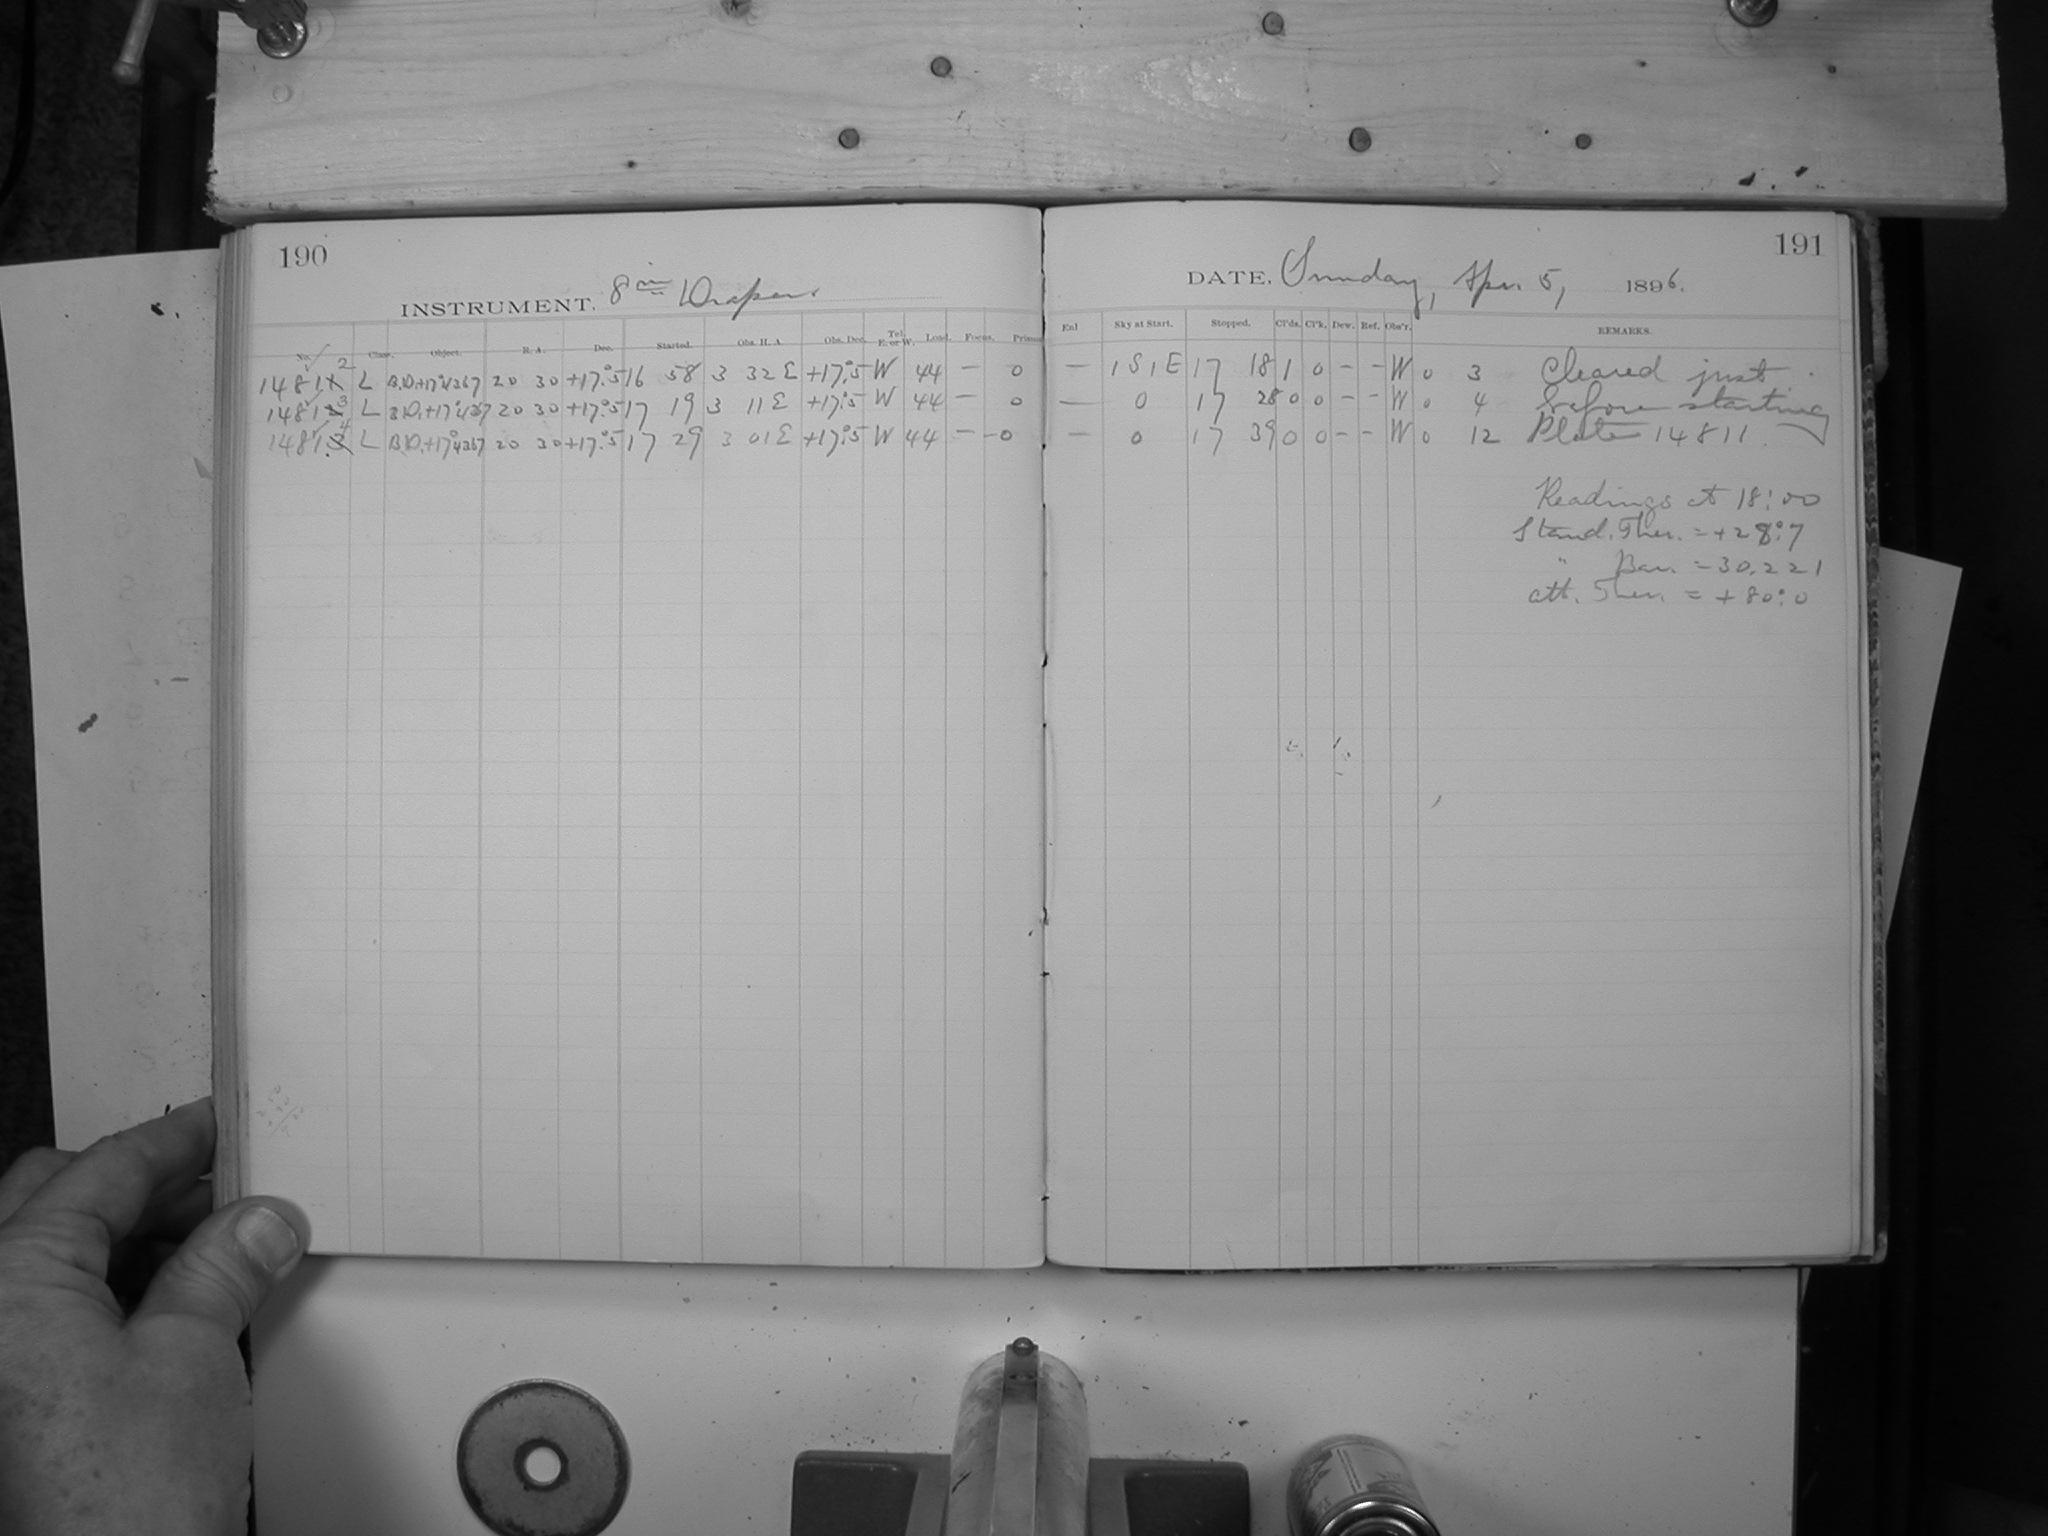 190
INSTRUMENT. 8 in Draper.
No. Class. Object. R. A. Dec. Started. Obs. H. A. Obs. Dec. Tel. E. or W. Load. Focus. Prism
14812 L B.D.+17°4367 20 30 +17°.5 16 58 3 32 E +17°.5 W 44 — 0
14813 L B.D.+17°4367 20 30 +17°.5 17 19 3 11 E +17°.5 W 44 — 0
14814 L B.D.+17°4367 20 30 +17°.5 17 29 3 01 E +17°.5 W 44 — 0
191
DATE, Sunday, Apr. 5, 1896.
Enl Sky at Start. Stopped. Cl'ds. Cl'k. Dew. Ref. Obs'r. REMARKS.
— 1 S 1 E 17 18 1 0 - - W 0 3 Cleared just
— 0 17 28 0 0 - - W 0 4 before starting
— 0 17 39 0 0 - - W 0 12 Plate 14811.
Readings at 18:00
Stand. Ther. = +28°.7
" Bar. = 30.221
att. Ther. = +80°.0